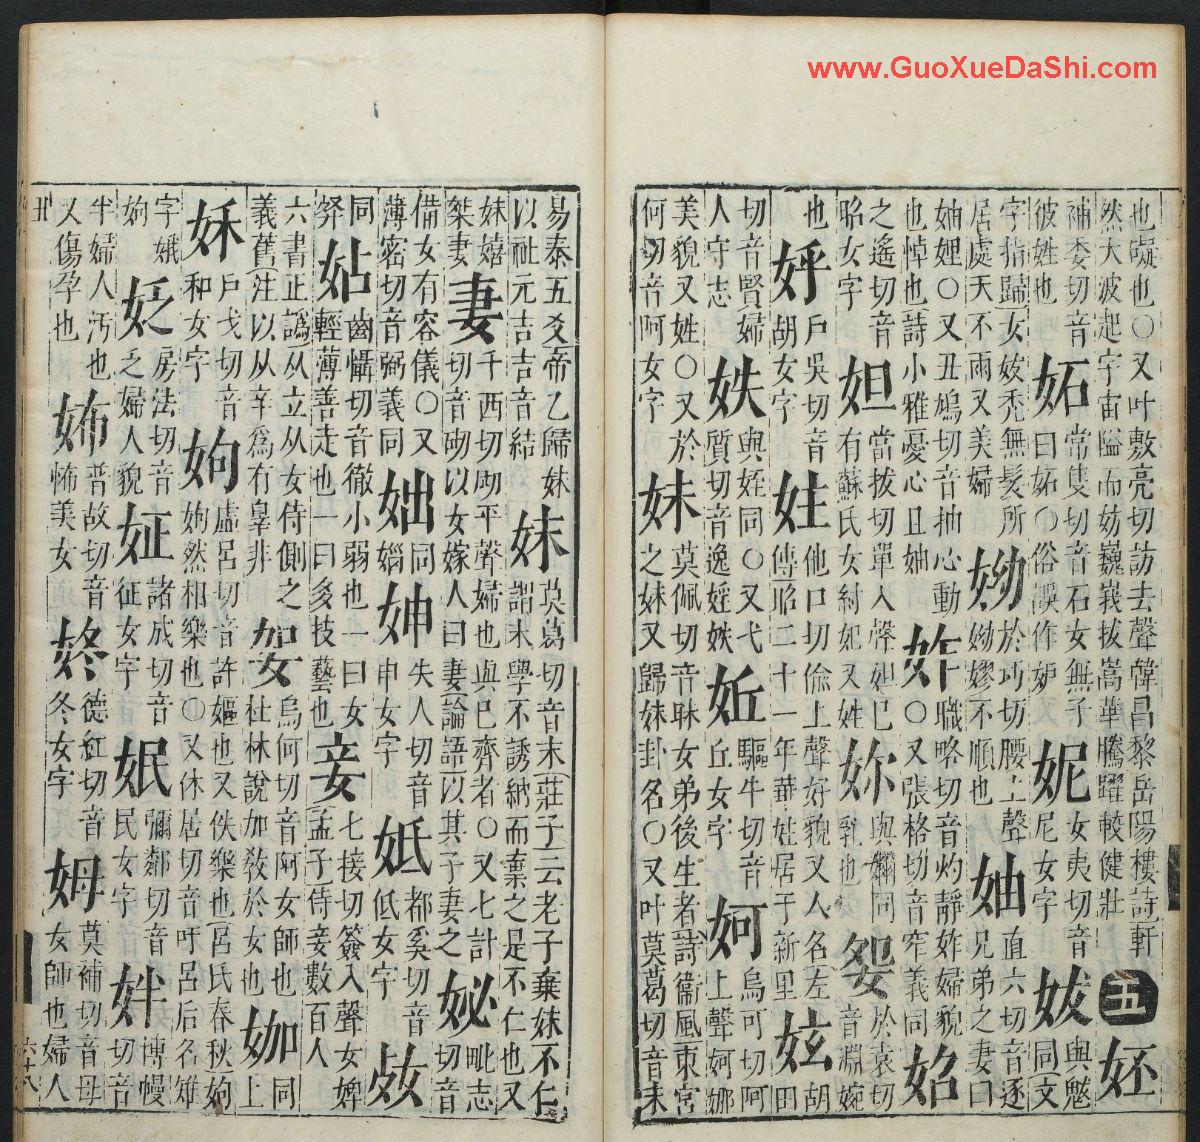 也礙也〇又叶敷亮切訪去聲韓昌黎岳陽樓詩軒
然大波起宇宙隘而妨巍巍拔嵩華騰躍較健壯
五
補委切音
彼姓也
妬
常隻切音石女無子
曰妬〇俗誤作妒
妮
女夷切音
尼女字
妭
與魃
同文
字指歸女妭禿無髮所
居處天不雨又美婦
於巧切腰上聲
嫪不順也
妯
直六切音逐
兄弟之妻曰
妯娌〇又丑鳩切音抽心動
也悼也詩小雅憂心且妯
妰
職略切音灼靜妰婦貌
〇又張格切音窄義同
妱
之遙切音
昭女字
妲
當拔切單入聲妲己
有蘇氏女紂妃又姓
妳
與嬭同
乳也
妴
於袁切
音淵婉
也
戶吳切音
胡女字
妵
他口切偸上聲好貌又人名左
傳昭二十一年華妵居于新里
妶
胡
田
切音賢婦
人守志
妷
與姪同〇又弋
質切音逸婬妷
驅牛切音
丘女字
妸
烏可切阿
上聲妸娜
美貌又姓〇又於
何切音呵女字
妹
莫佩切音昧女弟後生者詩衞風東宮
之妹又歸妹卦名〇又叶莫葛切音末
易泰五爻帝乙歸妹
以祉元吉吉音結
妺
莫葛切音末莊子云老子棄妹不仁
謂末學不誘納而棄之是不仁也又
妹嬉
桀妻
妻
千西切砌平聲婦也與已齊者〇又七計
切音砌以女嫁人曰妻論語以其子妻之
妼
毗志
切音
備女有容儀〇又
薄密切音弼義同
同
妽
失人切音
申女字
都奚切音
低女字
同
齒懾切音徹小弱也一曰女
輕薄善走也一曰多技藝也
妾
七接切簽入聲女婢
孟子侍妾數百人
六書正譌从立从女侍側之
義舊注以从辛爲有辠非
妿
烏何切音阿女師也
杜林說加敎於女也
同
上
戶戈切音
和女字
姁
虛呂切音許嫗也又佚樂也呂氏春秋姁
姁然相樂也〇又休居切音吁呂后名雉
字娥
姁
姂
房法切音
乏婦人貌
姃
諸成切音
征女字
姄
彌鄰切音
民女字
姅
博幔
切音
半婦人汚也
又傷孕也
普故切音
怖美女
德紅切音
冬女字
姆
莫補切音母
女師也婦人
六十八
www.GuoXueDaShi.com